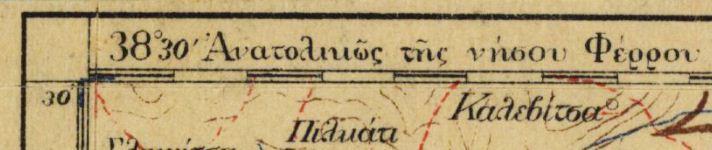 38°30′ Ἀνατολικῶς τῆς νήσου Φέρρου
30′
Καλεβίτσα
Πιλκάτι